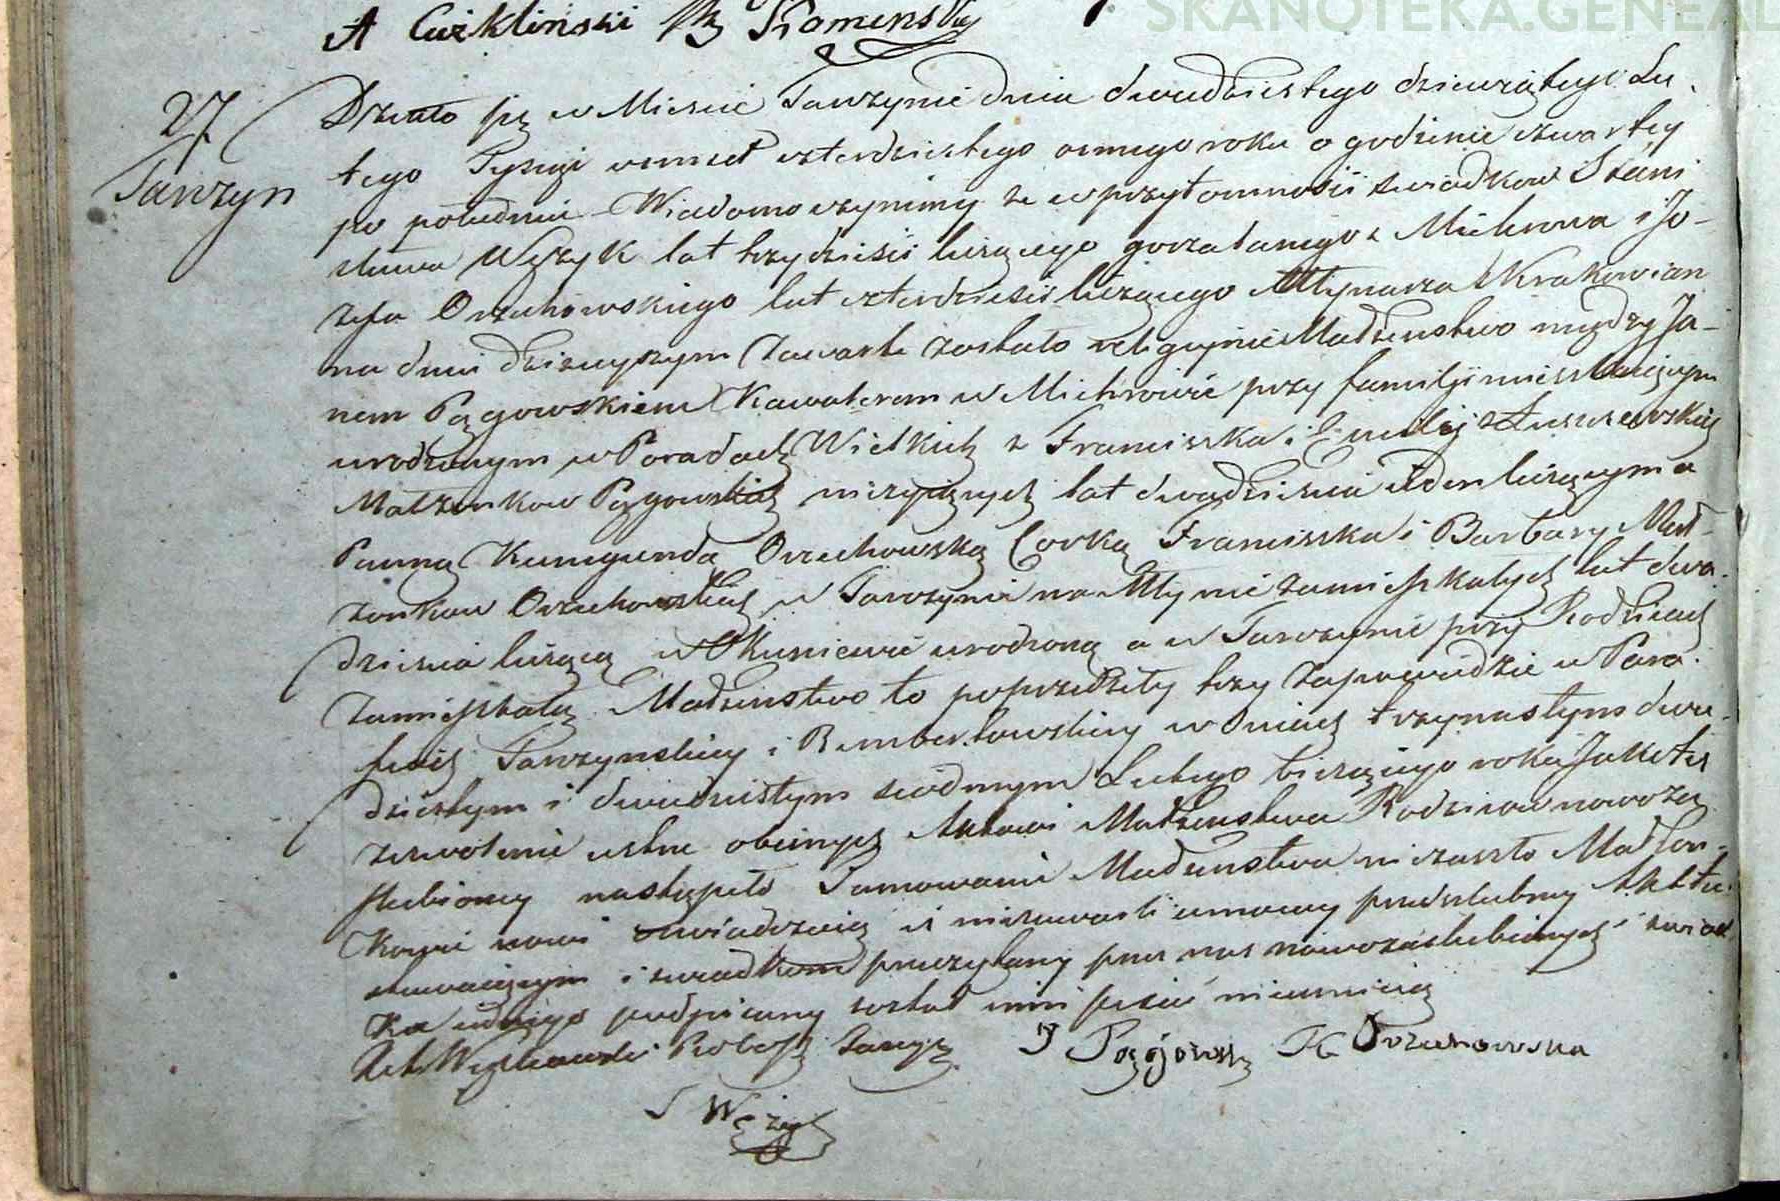 SKANOTEKA.GENEAL
A Ćwikliński
27
Tarczyn
Działo się w Miescie Tarczynie dnia dwudziestego dziewiątego Lu-
tego Tysiąc osmset czterdziestego osmego roku o godzinie czwartey
po południu Wiadomo czynimy ze w przytomności swiadkow Stani
sława Wężyk lat trzydzieści liczącego z Michrowa i Jó-
zefa Orzechowskiego lat czterdzieści liczącego Młynarza z Krakowian
na dniu dzisieyszym zawarte zostało religijnie Małżenstwo między Ja-
nem Pągowskiem Kawalerem w Michrowie przy familji mieszkaiącym
urodzonym w Poradach Wielkich z Franciszka i
Małżonkow Pągowskich nieżyiących lat dwadziescia ieden liczącym a
Panną Kunegundą Orzechowską Corką Franciszka i Barbary Mał-
żonkow Orzechowskich w Tarczynie na Młynie zamieszkałych lat dwa-
dziescia liczącą w urodzoną a w Tarczynie przy Rodzicach
zamieszkałą. Małżenstwo to poprzedziły trzy zapowiedzie w Para-
fiach Tarczynskiey i w dniach trzynastym dwu-
dziestym i dwudziestym siodmym Lutego bieżącego roku Jako też
zezwolenie ustne obecnych Aktowi Małżenstwa Rodzicow nowoza
slubioney nastąpiło Tamowanie Małżenstwa niezaszło Małżon-
kowie nowi swiadczą iż niezawarli umowy przedslubney Akt ten
stawaiącym i swiadkom przeczytany przez nas nowozaslubionych i swiad
ka iednego podpisany został inni pisać nieumieią
J Pągowski K Orzechowska
S Wężyk